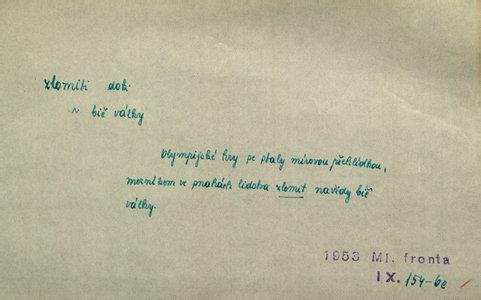 zlomiti dok.
~ bič války
Olympijské hry se staly mírovou přehlídkou,
mezníkem ve snahách lidstva zlomit navždy bič
války.
1953 Ml. fronta
IX. 154-6c